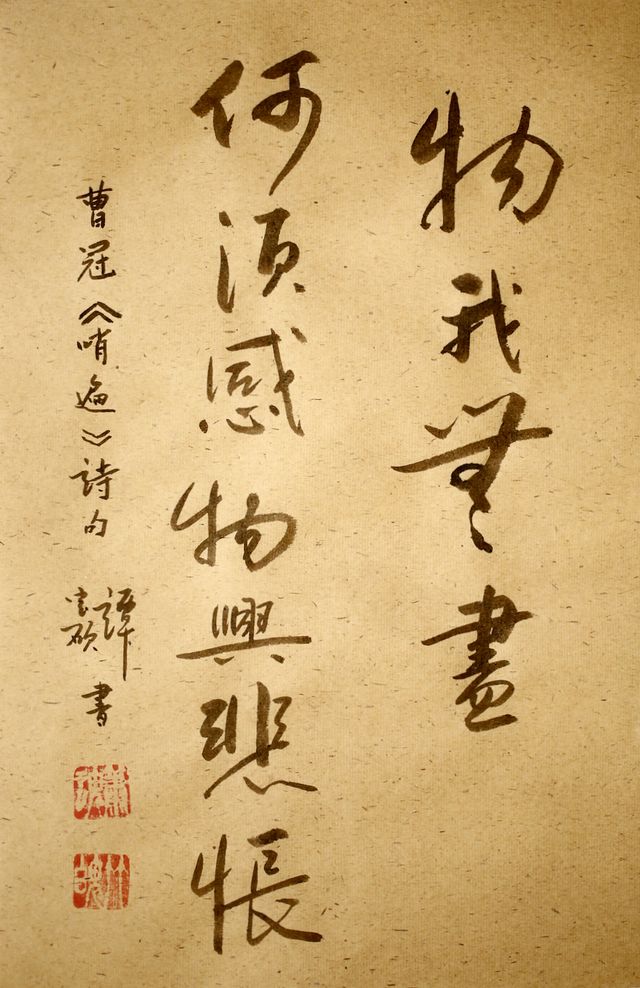 物我無盡
何須感物興悲悵
曹冠《哨遍》詩句
譚 書